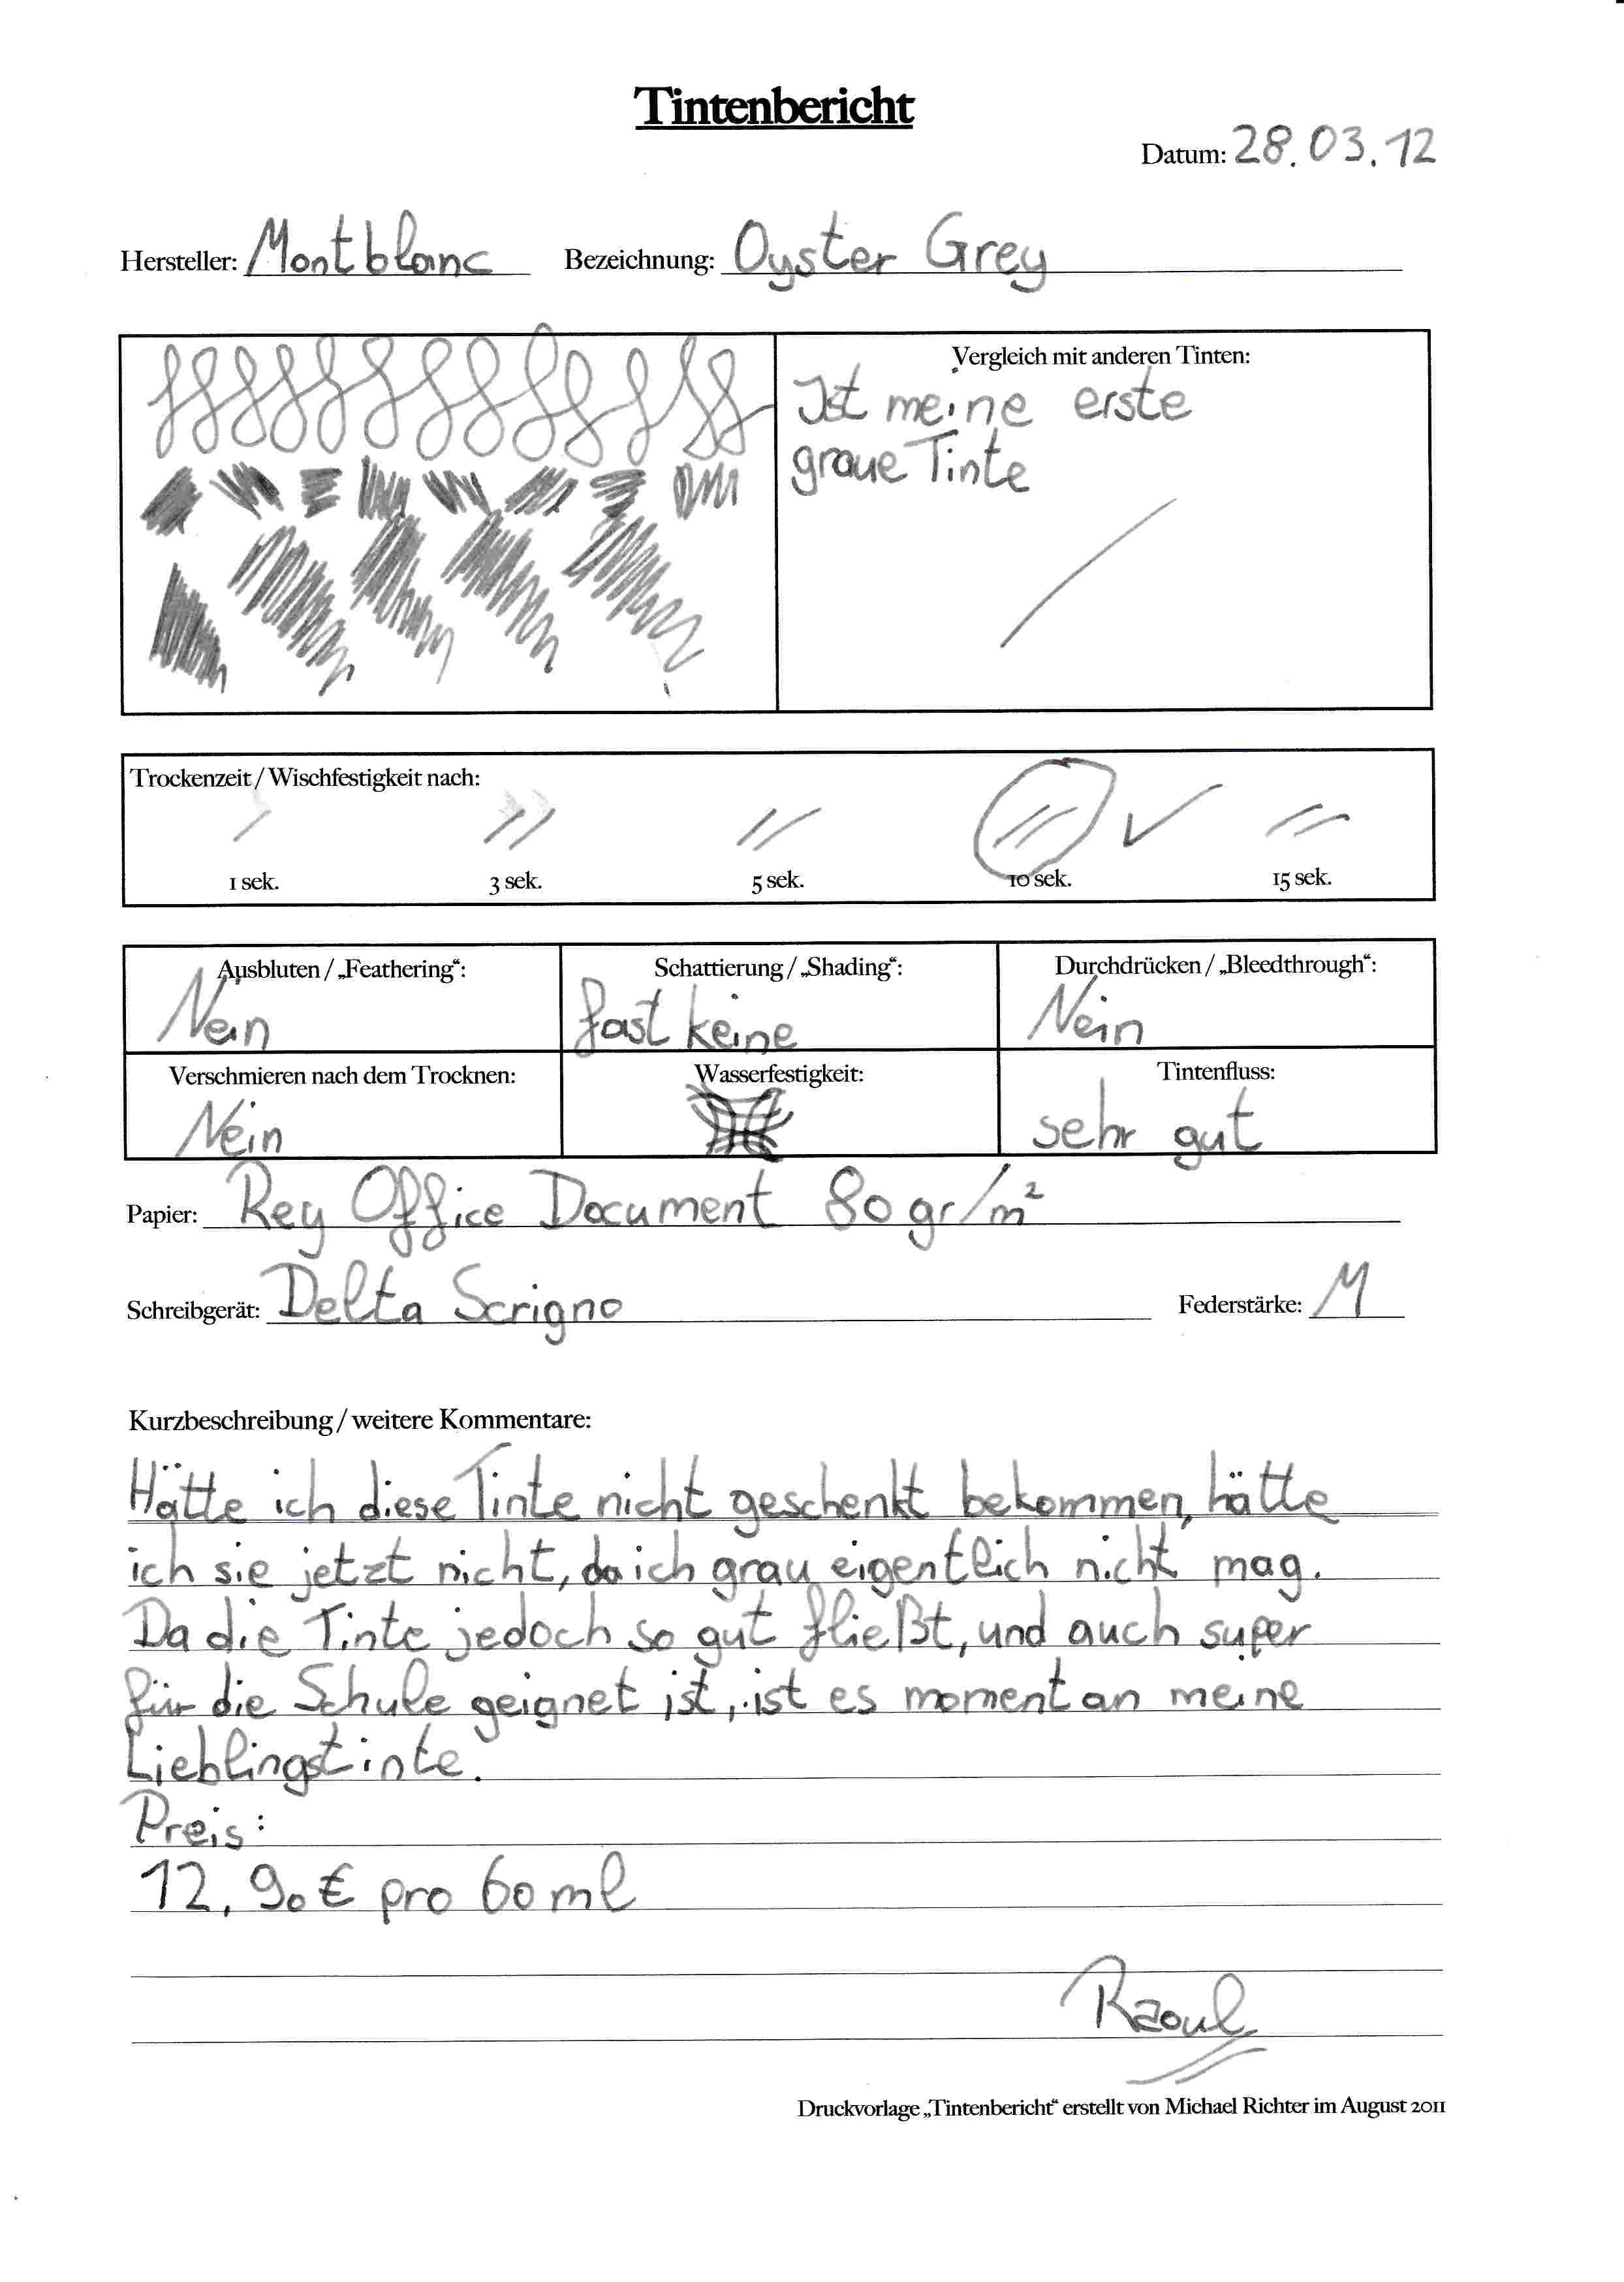 Tintenbericht
Datum: 28.03.12
Hersteller: Montblanc Bezeichnung: Oyster Grey
Vergleich mit anderen Tinten:
Ist meine erste
graue Tinte
Trockenzeit / Wischfestigkeit nach:
1 sek. 3 sek. 5 sek. 10 sek. 15 sek.
Ausbluten / „Feathering“: Schattierung / „Shading“: Durchdrücken / „Bleedthrough“:
Nein fast keine Nein
Verschmieren nach dem Trocknen: Wasserfestigkeit: Tintenfluss:
Nein sehr gut
Papier: Rey Office Document 80 gr/m²
Schreibgerät: Delta Scrigno Federstärke: M
Kurzbeschreibung / weitere Kommentare:
Hätte ich diese Tinte nicht geschenkt bekommen, hätte
ich sie jetzt nicht, da ich grau eigentlich nicht mag.
Da die Tinte jedoch so gut fließt, und auch super
für die Schule geignet ist, ist es momentan meine
Lieblingstinte.
Preis:
12,90€ pro 60ml
Raoul
Druckvorlage „Tintenbericht“ erstellt von Michael Richter im August 2011